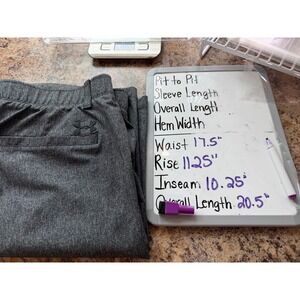 Pit to Pit
Sleeve Length
Overall Length
Hem Width
Waist 17.5"
Rise 11.25"
Inseam 10.25"
Overall Length 20.5"